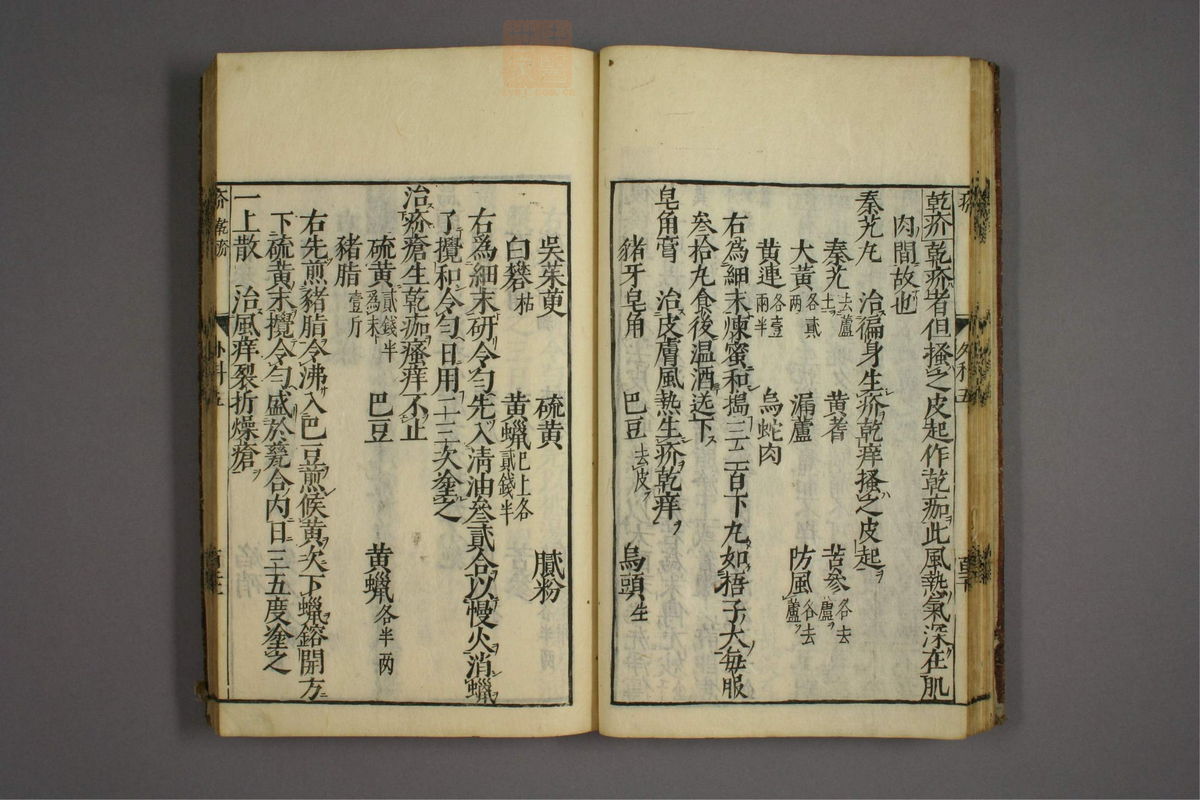 乾疥乾疥者但搔之皮起作乾痂此風熱氣深在肌
肉間故也
秦艽丸 治徧身生疥乾痒搔之皮起
秦艽去蘆土 黃耆 苦參各去蘆
大黃各貳兩 漏蘆 防風各去蘆
黃連各壹兩半 烏蛇肉
右為細末煉蜜和搗三二百下丸如梧子大每服
叁拾丸食後温酒送下
皂角膏 治皮膚風熱生疥乾痒
豬牙皂角 巴豆去皮 烏頭生
吳茱萸 硫黃 膩粉
白礬枯 黃蠟已上各貳錢半
右為細末研令勻先入清油叁貳合以慢火消蠟
了攪和令勻日用二三次塗之
治疥瘡生乾痂瘙痒不止
硫黃貳錢半為末 巴豆 黃蠟各半兩
豬脂壹斤
右先煎豬脂令沸入巴豆煎候黃次下蠟鎔開方
下硫黃末攪令勻盛於甆合內日三五度塗之
一上散 治風痒裂折燥瘡
疥 乾疥
外科五